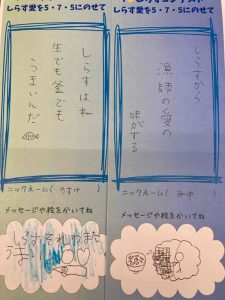 しらす愛を5・7・5にのせて
しらすから
漁師の愛の
味がする
ニックネーム( みゆ )
メッセージや絵をかいてね
しらす愛を5・7・5にのせて
しらすはね
生でも釜でも
うまいんだ
ニックネーム( のすけ )
メッセージや絵をかいてね